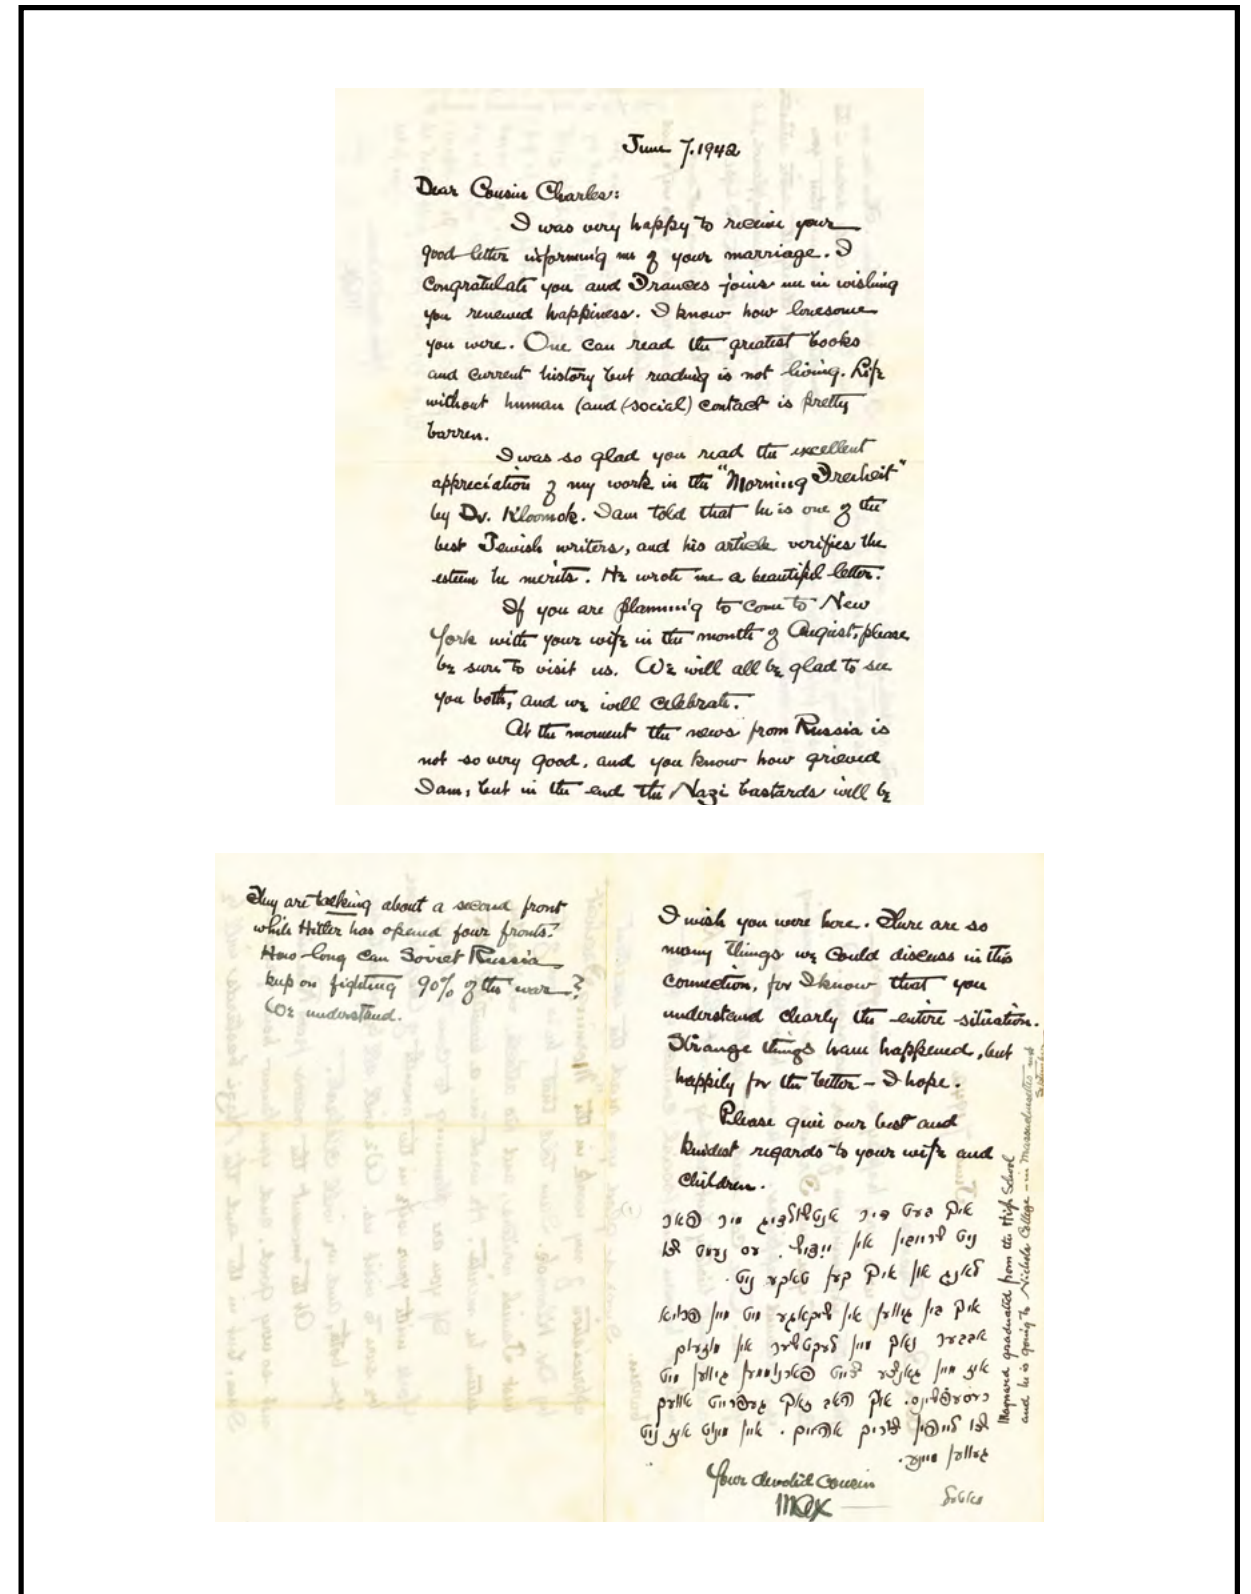 June 7. 1942
Dear Cousin Charles:
I was very happy to receive your
good letter informing me of your marriage. I
congratulate you and Frances joins me in wishing
you renewed happiness. I know how lonesome
you were. One can read the greatest books
and current history but reading is not living. Life
without human (and (social) contact is pretty
barren.
I was so glad you read the excellent
appreciation of my work in the "Morning Freiheit"
by Dr. Kloomok. I am told that he is one of the
best Jewish writers, and his article verifies the
esteem he merits. He wrote me a beautiful letter.
If you are planning to come to New
York with your wife in the month of August, please
be sure to visit us. We will all be glad to see
you both, and we will celebrate.
At the moment the news from Russia is
not so very good, and you know how grieved
I am, but in the end the Nazi bastards will be
They are talking about a second front
while Hitler has opened four fronts.
How long can Soviet Russia
keep on fighting 90% of the war?
We understand.
I wish you were here. There are so
many things we could discuss in this
connection, for I know that you
understand clearly the entire situation.
Strange things have happened, but
happily for the better - I hope.
Please give our best and
kindest regards to your wife and
children.
איך בעט דיר אנטשולדיג מיר פאר
ניט שרייבין אין יידיש. עס נעמט צו
לאנג און איך קען טאקע ניט.
איך בין געווען אין שיקאגע מיט מיין פרוי
אבער נאך מיין לעקטשער אין
איז מיין גאנצע צייט פארנומען געווען מיט
איך האב געפרייט
צו אהיים. איין מינוט איז ניט
געווען מיינע.
Your devoted cousin
Max
Maynard graduated from the High School
and he is going to Nichols College - in Massachusetts next
September